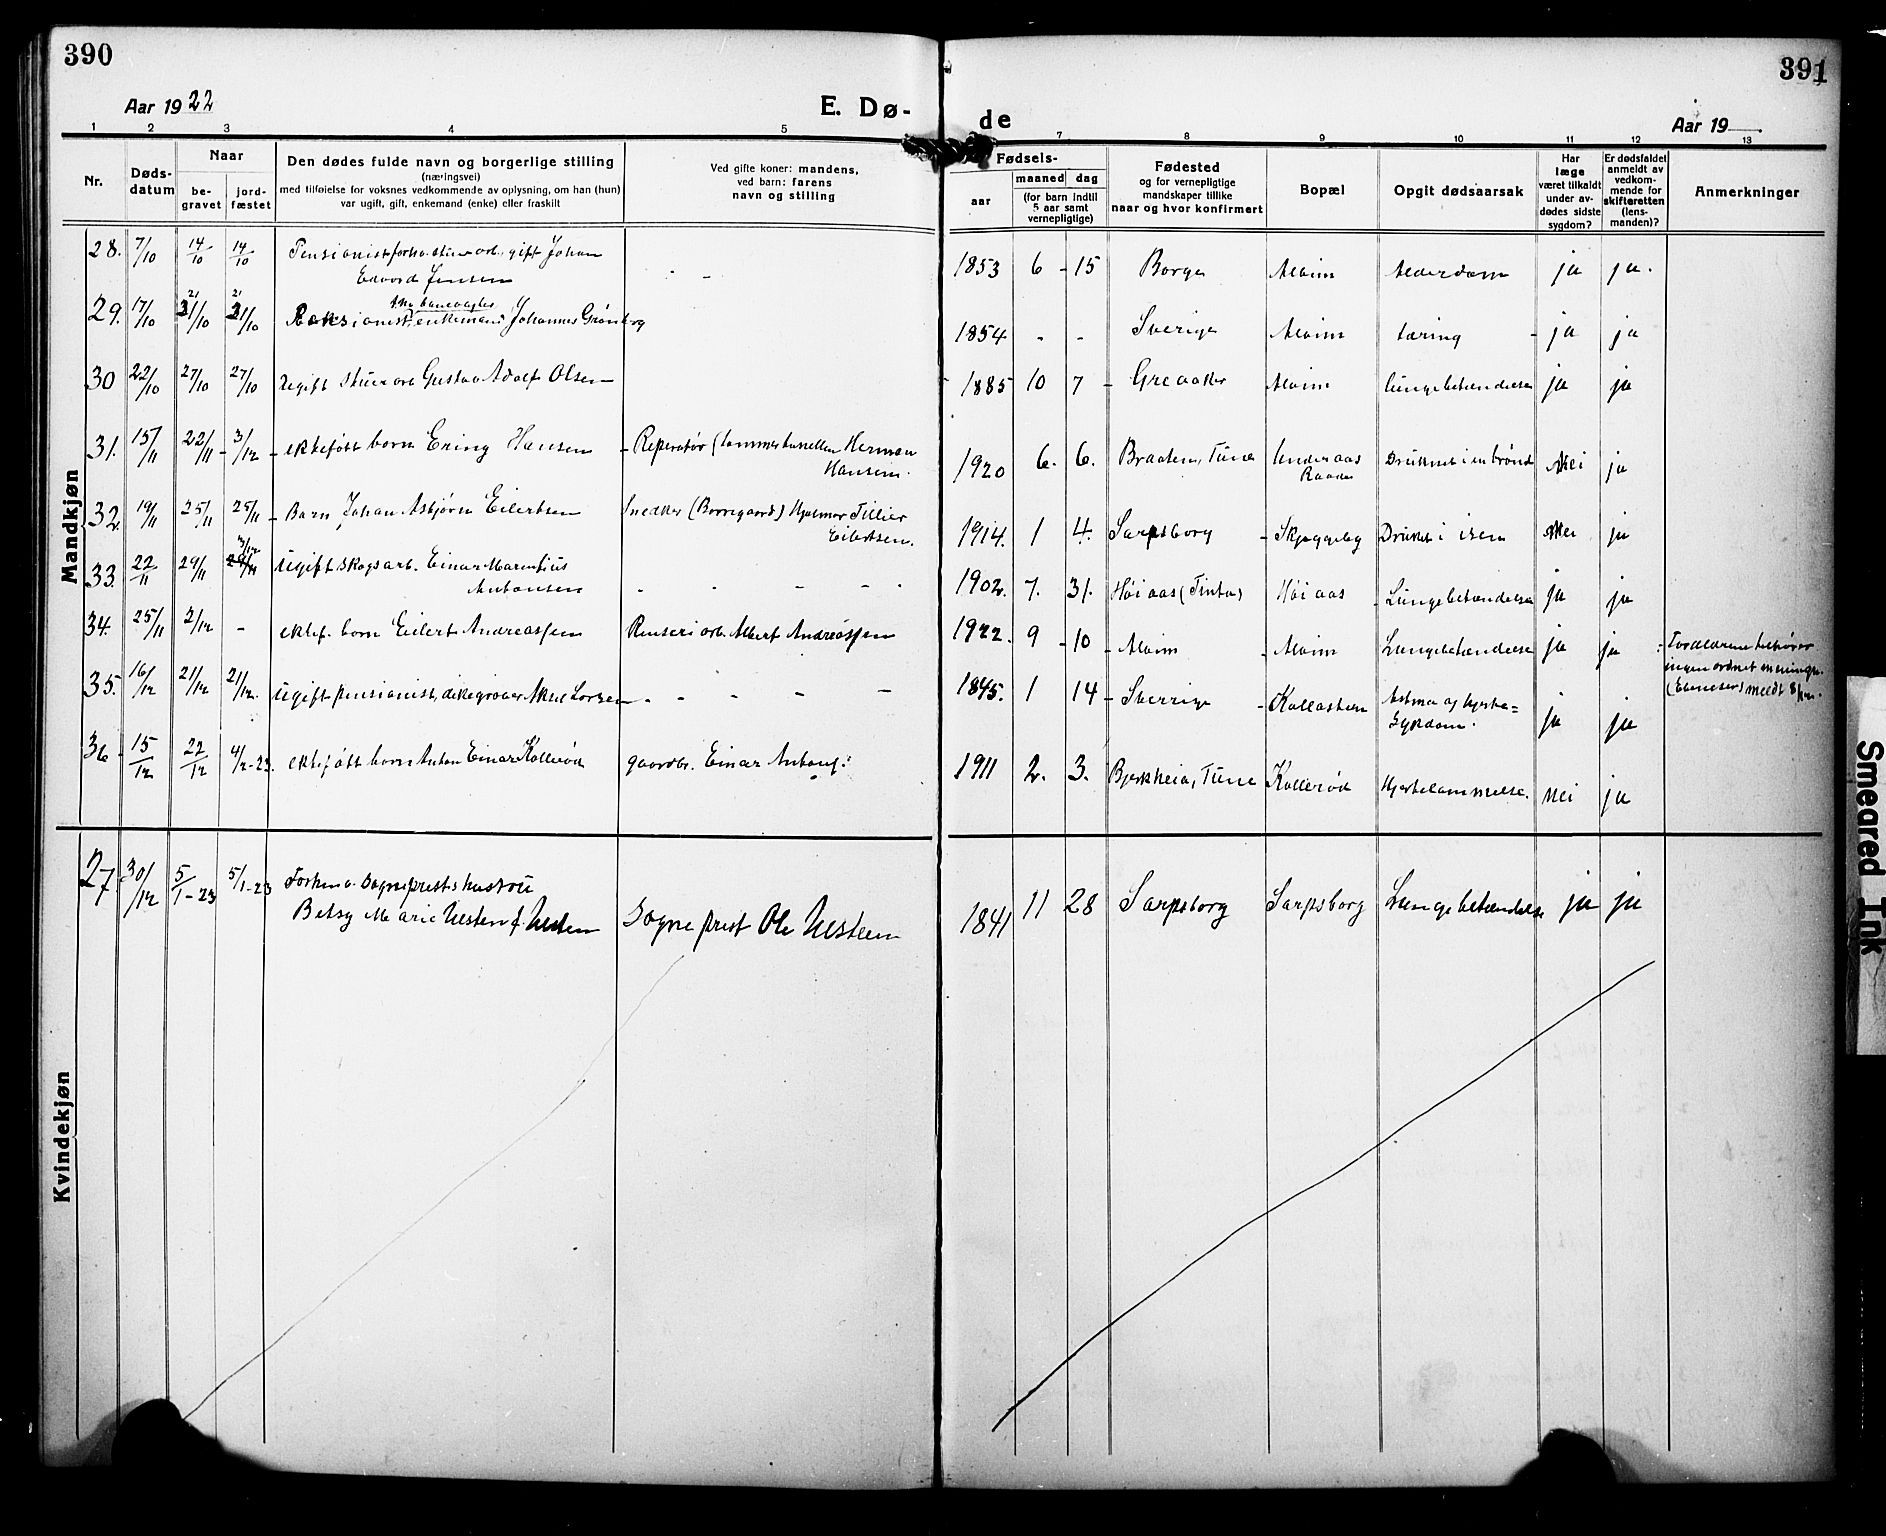 390
391
Aar 1922
E. Dø-
de
Aar 19
1 2 3 4 5 7 8 9 10 11 12 13
Nr.
Døds-
datum
Naar
be-
gravet
jord-
fæstet
Den dødes fulde navn og borgerlige stilling
(næringsvei)
med tilføielse for voksnes vedkommende av oplysning, om han (hun)
var ugift, gift, enkemand (enke) eller fraskilt
Ved gifte koner: mandens,
ved barn: farens
navn og stilling
Fødsels-
aar
maaned dag
(for barn indtil
5 aar samt
vernepligtige)
Fødested
og for vernepligtige
mandskaper tillike
naar og hvor konfirmert
Bopæl
Opgit dødsaarsak
Har
læge
været tilkaldt
under av-
dødes sidste
sygdom?
Er dødsfaldet
anmeldt av
vedkom-
mende for
skifteretten
(lens-
manden)?
Anmerkninger
Mandkjøn
28. 7/10 14/10 14/10 Pensionist, gift Johan
Edvard Jensen
1853 6 - 15 Borge Alvim Alderdom ja ja.
29. 17/10 21/10 21/10 enkemand Johannes Grønberg
1854 - - Sverige Alvim tæring - ja ja
30 22/10 27/10 27/10 Ugift Gustav Adolf Olsen
1885 10 7 - Greaaker Alvim lungebetændelse ja ja
31. 15/11 22/11 - 3/12 ektefødt barn Ering Hansen - Reperatør Herman
Hansen.
1920 6. 6. Braaten, Tune Underaas
Raade
Druknet i en brønd Nei ja
32. 19/11 25/11 25/11 - Barn Johan Asbjørn Eilertsen Snedker (Borregaard) Hjalmar Tillier
Eilertsen.
1914. 1 4. Sarpsborg - Skjeggeby Druknet i isen Nei ja
33. 22/11 29/11 3/12 Ugift skogsarb. Einar Marentius
Antonsen
1902. 7. 31. Høiaas (Tinta) Høiaas - Lungebetændelse ja ja
34. 25/11 2/12 - ektef. barn Eilert Andreassen Renseriarb. Albert Andreassen
1922. 9 - 10 - Alvim - Alvim Lungebetændelse ja ja
Forældrene tilhører
ingen ordnet menighet.
(Ebeneser) meldt
35. 16/12 21/12 21/12. Ugift pensionist, Aksel Larsen
1845. 1 14 - Sverrige - Kallasteen Astma og hjerte=
sygdom. ja ja
36 15/12 22/12 4/2-23. ektefødt barn Anton Einar Kallerød gaardbr. Einar Antons:
1911 2. 3. Bjerkheia, Tune Kallerød Hjertelammelse. Nei ja
Kvindekjøn
27. 30/12 5/1-23 5/1-23 Forhenv. sogneprests hustru
Betsy Marie Uesteen f. Uesteen Sogneprest Ole Uesteen
1841 11 28 Sarpsborg Sarpsborg Lungebetændelse ja ja
Smeared Ink